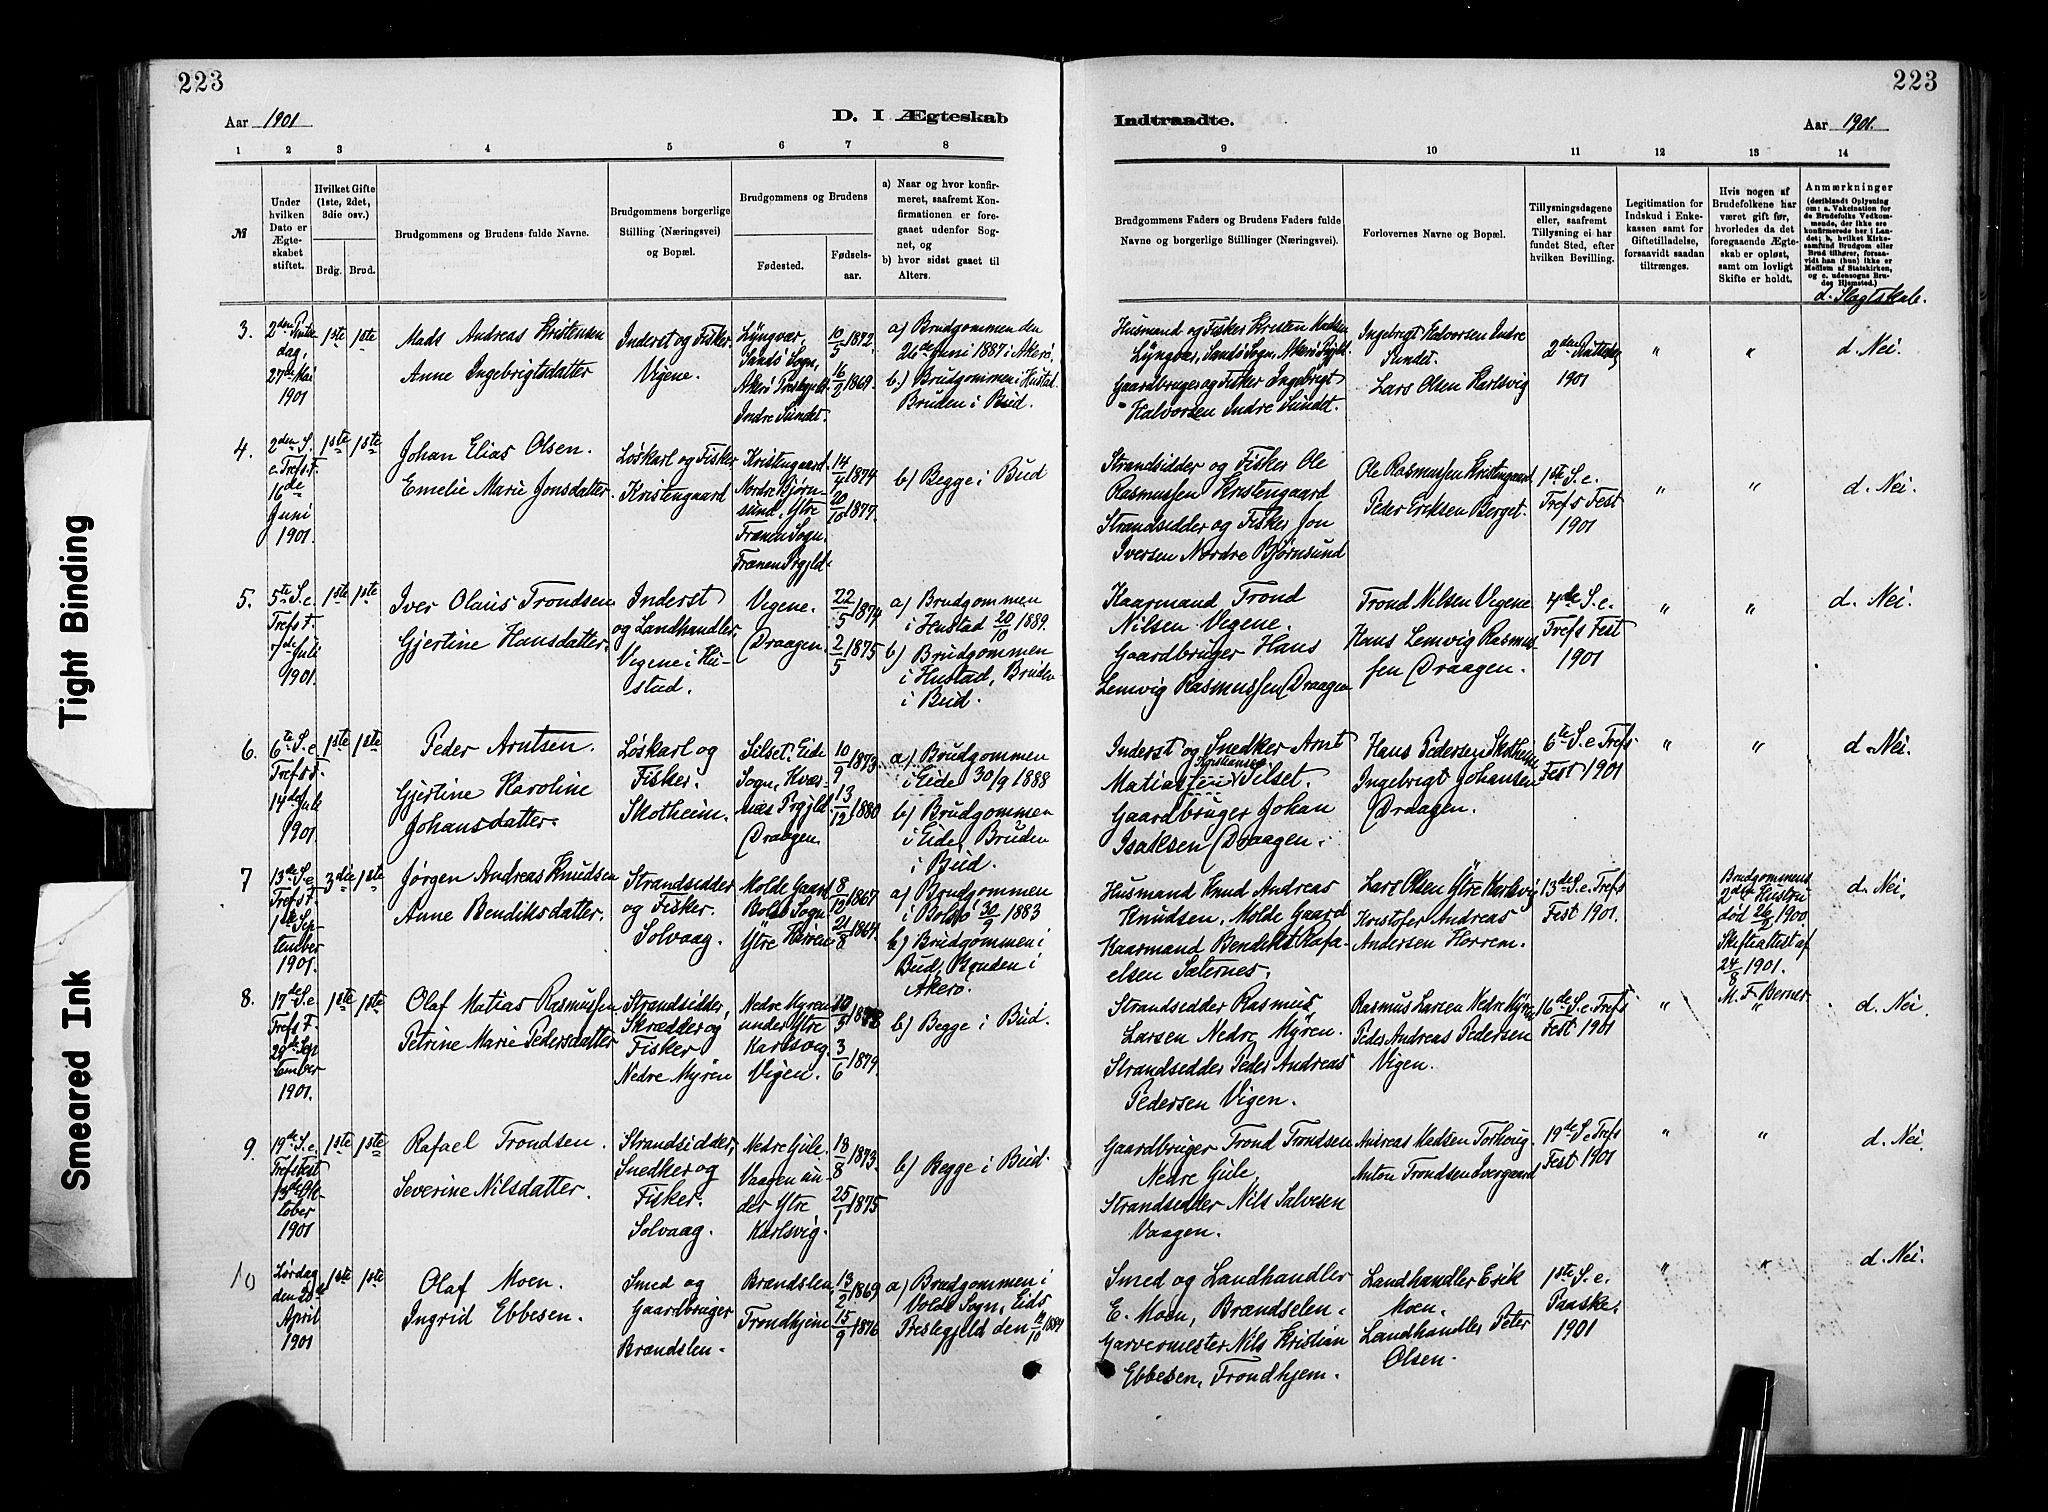 223
Aar 1901
D. I Ægteskab
1 2 3 4 5 6 7 8
№
Under hvilken Dato er Ægteskabet stiftet.
Hvilket Gifte (1ste, 2det, 3die osv.)
Brdg. Brud.
Brudgommens og Brudens fulde Navne.
Brudgommens borgerlige Stilling (Næringsvei) og Bopæl.
Brudgommens og Brudens
Fødested. Fødselsaar.
a) Naar og hvor konfirmeret, saafremt Konfirmationen er foregaaet udenfor Sognet, og
b) hvor sidst gaaet til Alters.
3. 1ste 1ste
27de Mai
1901
Mads Andreas Kristensen
Anne Ingebrigtsdatter
Inderst og Fisker
Vigene.
Lyngvær,
Sandø Sogn,
Akerø Præstegjeld.
Indre Sundet.
10/5 1872.
16/2 1869.
a) Brudgommen den
26de Juni 1887 i Akerø.
b.) Brudgommen i Hustad.
Bruden i Bud.
4. 2den S.
e. Trefs. F.
16de
Juni
1901.
1ste 1ste
Johan Elias Olsen.
Emelie Marie Jonsdatter.
Løskarl og Fisker
Kristengaard
Kristengaard
Nordre Bjørn-
sund, Ytre
Frænen Sogn.
Frænen Prgjld.
14/4 1874
20/10 1877.
b) Begge i Bud
5. 5te S. e.
Trefs F.
7de Juli
1901.
1ste 1ste
Iver Olaus Trondsen
Gjertine Hansdatter.
Inderst
og Landhandler,
Vigene i Hu-
stad.
Vigene.
Draagen.
22/5 1874
2/5 1875
a) Brudgommen
i Hustad 20/10 1889.
b) Brudgommen
i Hustad, Bruden
i Bud.
6. 6te S. e
Trefs F.
14de Juli
1901.
1ste 1ste
Peder Arntsen.
Gjertine Karoline
Johansdatter.
Løskarl og
Fisker.
Skotheim.
Silset. Eide
Sogn, Kvær-
næs Prgjld.
Draagen.
10/9 1873
13/12 1880
a) Brudgommen
i Eide 30/9 1888
b) Brudgommen
i Eide, Bruden
i Bud.
7 13de S. e
Trefs F.
1ste Sep-
tember
1901.
3die 1ste
Jørgen Andreas Knudsen
Anne Bendiksdatter.
Strandsidder
og Fisker.
Solvaag.
Molde Gaard
Bolsø Sogn.
Ytre Harøen
8/12 1867
21/8 1864.
a) Brudgommen
i Bolsø 30/9 1883
b) Brudgommen i
Bud, Bruden i
Akerø.
8. 17de S. e
Trefs F.
29de Sep
tember
1901.
1ste 1ste
Olaf Matias Rasmussen
Petrine Marie Pedersdatter
Strandsidder,
Skrædder og
Fisker
Nedre Myren
Nedre Myren
under Ytre
Karlsvog.
Vigen.
3/6 1879.
b) Begge i Bud.
9. 19de S. e.
Trefs Fest
13de Ok-
tober
1901
1ste 1ste
Rafael Trondsen.
Severine Nilsdatter.
Strandsidder,
Snedker og
Fisker.
Solvaag.
Nedre Gule.
Vaagen un-
der Ytre
Karlsvig.
18/8 1873.
25/1 1875
b) Begge i Bud.
10 Lørdag
April
1901
1ste 1ste
Olaf Moen.
Ingrid Ebbesen.
Smed og
Gaardbruger
Brændslen.
Brændslen,
Trondhjem
13/2 1869
15/9 1876
a) Brudgommen i
Volds Sogn, Eids
Prestegjeld den 12/10 1884
223
Indtraadte.
Aar 1901.
9 10 11 12 13 14
Brudgommens Faders og Brudens Faders fulde Navne og borgerlige Stillinger (Næringsvei).
Forlovernes Navne og Bopæl.
Tillysningsdagene eller, saafremt Tillysning ei har fundet Sted, efter hvilken Bevilling.
Legitimation for Indskud i Enkekassen samt for Giftetilladelse, forsaavidt saadan tiltrænges.
Hvis nogen af Brudefolkene har været gift før, hvorledes da det foregaaende Ægteskab er opløst, samt om lovligt Skifte er holdt.
Anmærkninger
(deriblandt Oplysning om: a. Vakcination for de Brudefolks Vedkommende, der ikke ere konfirmerede her i Landet; b, hvilket Kirkesamfund Brudgom eller Brud tilhører, forsaavidt han (hun) ikke er Medlem af Statskirken, og c. udensogns Brudes Hjemsted.)
d. Slagtskab.
Husmand og Fisker Kristen Madsen
Lyngvær, Sandø Sogn, Akerø Prgjld.
Gaardbruger og Fisker Ingebrigt
Halvorsen Indre Sundet.
Ingebrigt Halvorsen Indre
Sundet.
Lars Olsen Karlsvig
1901
" " d. Nei.
Strandsidder og Fisker Ole
Rasmussen Kristengaard
Strandsidder og Fisker Jon
Iversen Nordre Bjørnsund
Ole Rasmussen Kristengaard
Peder Eriksen Berget.
1ste S. e.
Trefs Fest
1901
" " d. Nei.
Kaarmand Trond
Nilsen Vegene.
Gaardbruger Hans
Lemvig Rasmussen Draagen
Trond Nilsen Vegene
Hans Lemvig Rasmus-
sen Draagen.
4de S. e.
Trefs Fest
1901
" " d. Nei.
Inderst og Snedker Arnt
Matiassen Kristiansen Silset.
Gaardbruger Johan
Isaksen Draagen.
Hans Pedersen Skotheim
Ingebrigt Johansen
Draagen.
6te S. e Trefs
Fest 1901
" " d. Nei.
Husmand Knud Andreas
Knudsen, Molde Gaard
Kaarmand Bendikt Rafa-
elsen Sæternes.
Lars Olsen Ytre Karlsvig
Kristofer Andreas
Andersen Horrem.
13de S. e. Trefs
Fest 1901.
Brudgommens
2den Hustru
død 1900
Skifteattest af
24/8 1901.
M. F. Berner
d. Nei.
Strandsidder Rasmus
Larsen Nedre Myren.
Strandsidder Peder Andreas
Pedersen Vigen.
Rasmus Larsen Nedre Myren
Peder Andreas Pedersen
Vigen.
16de S. e Trefs
Fest 1901
" " d. Nei.
Gaardbruger Trond Trondsen
Nedre Gule,
Strandsidder Nils Salvesen
Vaagen.
Andreas Madsen
Anton Trondsen Ivergaard
19de S. e Trefs
Fest 1901
" " d. Nei.
Smed og Landhandler
E. Moen, Brændslen.
Garvermester Nils Kristian
Ebbesen, Trondhjem.
Landhandler Erik
Moen.
Landhandler Peter
Olsen.
1ste S. e.
Paaske.
1901
" " d. Nei.
Tight Binding
Smeared Ink